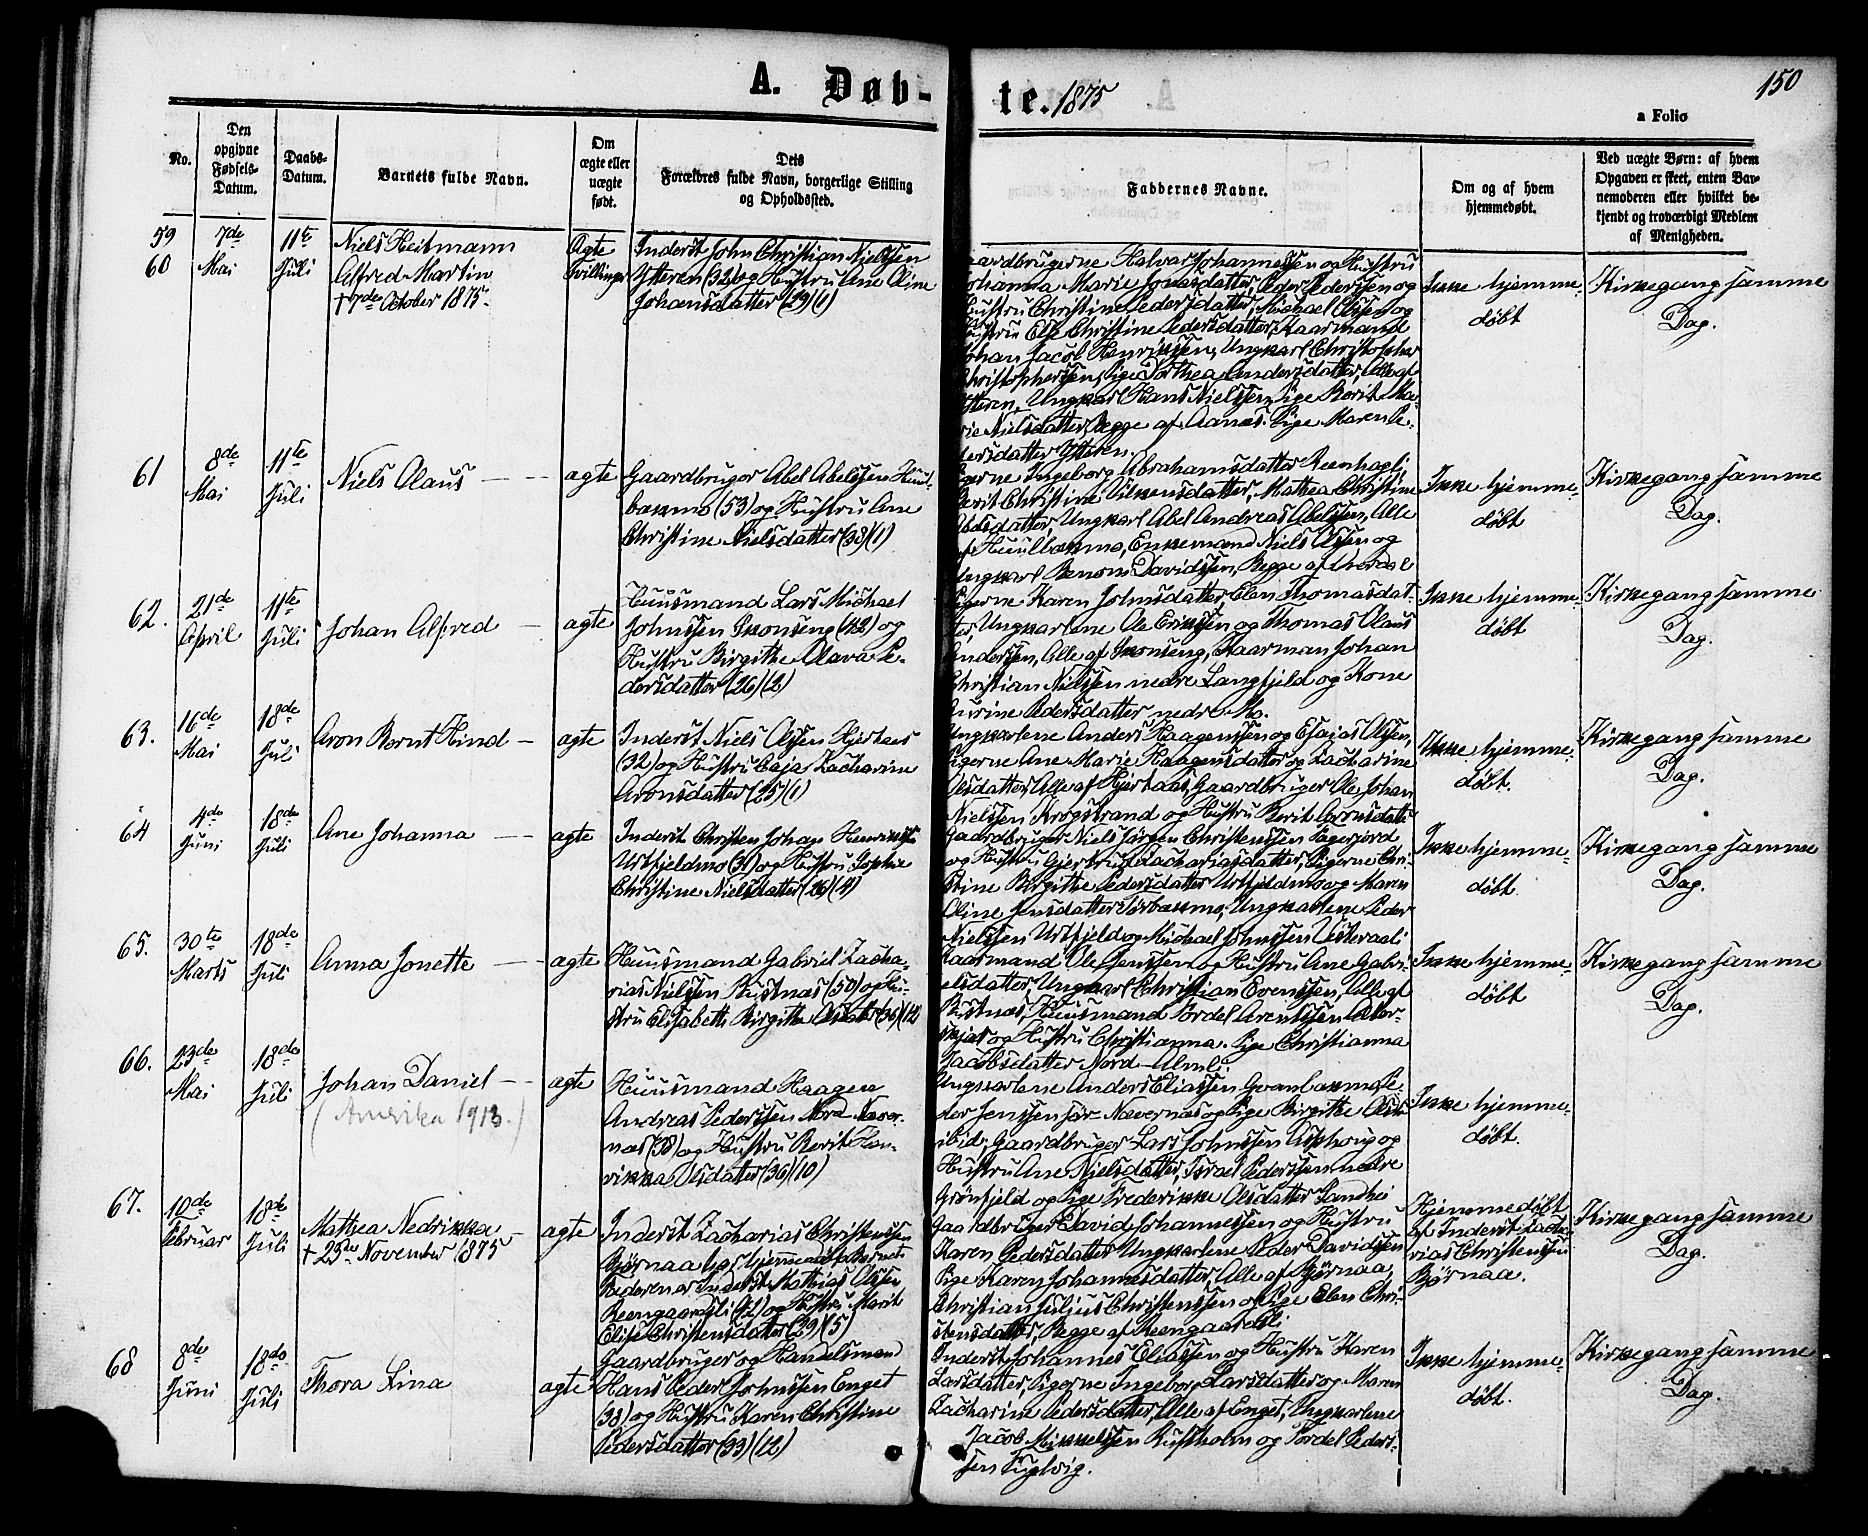 150
A. Døb-
te. 1875
a Folio
No.
Den
opgivne
Fødsels-
Datum.
Daabs-
Datum.
Barnets fulde Navn.
Om
ægte eller
uægte
født.
Dets
Forældres fulde Navn, borgerlige Stilling
og Opholdssted.
Faddernes Navne.
Om og af hvem
hjemmedøbt.
Ved uægte Børn: af hvem
Opgaven er skeet, enten Bar-
nemoderen eller hvilket be-
kjendt og troværdigt Medlem
af Menigheden.
59
60
7de
Mai
11te
Juli
Niels Heitmann
Alfred Martin
† 7de October 1875.
Ægte
Tvillinger
Inderst John Christian Nielsen
Ytteren (32) og Hustru Ane Oline
Johansdatter (29) (1)
aardbrugerne Halvar Johannessen og Hustru
Johanna Marie Jonasdatter, Peder Pederssen og
Hustru Christine Pedersdatter, Michael Olssen og
Hustru Else Christine Pedersdatter, Kaarmand
Johan Jacob Henrikssen, Ungkarl Christopher
Christophersen, Pige Dorthea Andersdatter, Alle af
Ytteren, Ungkarl Hans Nielssen, Pige Berit Ma-
rie Nielsdatter, Begge af Aanæs. Pige Maren Pe-
dersdatter Ytteren.
Ikke hjemme-
døbt
Kirkegang samme
Dag.
61
8de
Mai
11te
Juli
Niels Olaus
ægte
Gaardbruger Abel Abelssen Huul-
bakmo (53) og Hustru Ane
Christine Nielsdatter (38) (1)
Pigerne Ingeborg Abrahamsdatter Reenhagli,
Berit Christine Vilkensdatter, Mathea Christine
Abelsdatter, Ungkarl Abel Andreas Abelssen, Alle
af Huulbakmo, Enkemand Niels Olssen og
Ungkarl Benoni Davidssen, Begge af
Ikke hjemme-
døbt
Kirkegang samme
Dag.
62.
21de
April
11te
Juli
Johan Alfred
ægte
Huusmand Lars Michael
Johnssen Skonseng (42) og
Hustru Birgithe Olava Pe-
dersdatter (26) (2)
Pigerne Karen Johnsdatter, Elen Thomasdat-
ter, Ungkarlene Ole Erikssen og Thomas Olaus
Anderssen, Alle af Skonseng, Kaarman Johan
Christian Nielssen nedre Langfjeld og Kone
Gurine Pedersdatter nedre Mo.
Ikke hjemme-
døbt
Kirkegang samme
Dag.
63.
16de
Mai
18de
Juli
Aron Bernt Hind
ægte
Inderst Niels Olssen Hjertaas
(32) og Hustru Caja Zacharine
Aronsdatter (25) (1)
Ungkarlene Anders Haagenssen og Esajas Olssen,
Pigerne Ane Marie Haagensdatter og Zacharine
Olsdatter, Alle af Hjertaas, Gaardbruger Ole Johan
Nielssen Krogstrand og Hustru Berit Aronsdatter
Ikke hjemme-
døbt.
Kirkegang samme
Dag.
64
4de
Juni
18de
Juli
Ane Johanna
ægte
Inderst Christen Johan Henrikssen
Urtfjeldmo (31) og Hustru Sophie
Christine Nielsdatter (26) (4)
Gaardbruger Niels Jørgen Christenssen Fagerjord
og Hustru Gjertrud Zachariasdatter, Pigerne Chri-
stine Birgithe Pedersdatter Urtfjeldmo og Maren
Oline Jensdatter Tørbakmo, Ungkarlene Peder
Nielssen Urtfjeld og Michael Johnssen Vesteraali
Ikke hjemme-
døbt
Kirkegang samme
Dag.
65.
30te
Marts
18de
Juli
Anna Jonette
ægte
Huusmand Gabriel Zacha-
rias Nielssen Bustnæs (50) og Hu-
stru Elisabeth Birgithe Olsdatter (36) (12)
Kaarmand Ole Jenssen og Hustru Ane Gabri-
elsdatter, Ungkarl Christian Evenssen, Alle af
Bustnæs, Huusmand Tordel Arentssen Alter-
skjær og Hustru Christianna. Pige Christianna
Jacobsdatter Nord-Almli
Ikke hjemme-
døbt
Kirkegang samme
Dag.
66.
23de
Mai
18de
Juli
Johan Daniel
(Amerika 1913.)
ægte
Huusmand Haagen
Andreas Pederssen Nord-Næver-
næs (38) og Hustru Berit Hen-
rikka Olsdatter (36) (10)
Ungkarlene Anders Eliassen Granbakmo, Pe-
der Jenssen sør Nævernæs og Pige Birgithe Olsdr
ibid., Gaardbruger Lars Johnssen Askhoug og
Hustru Ane Nielsdatter, Israel Pederssen nedre
Grønfjeld og Pige Frederikke Olsdatter Sandhei
Ikke hjemme-
døbt.
67.
10de
Februar
18de
Juli
Mathea Nedrikka
† 23de November 1875
ægte
Inderst Zacharias Christenssen
Bjørnaa
Reengaardsli (42) og Hustru Marit
Elise Christensdatter (39) (5)
Gaardbruger David Johannessen og Hustru
Karen Pedersdatter, Ungkarlene Peder Davidssen
Pige Karen Johannesdatter, Alle af Bjørnaa,
Christian Julius Christenssen og Pige Elen Chri-
stensdatter, Begge af Reengaardsli
Hjemmedøbt
af Inderst Zacha-
rias Christenssen
Bjørnaa.
Kirkegang samme
Dag.
68
8de
Juni
18de
Juli
Thora Lina
ægte
Gaardbruger og Handelsmand
Hans Peder Johnssen Enget
(38) og Hustru Karen Christine
Pedersdatter (39) (12)
Inderst Johannes Eliassen og Hustru Karen
Larsdatter, Pigerne Ingeborg Larsdatter og Maren
Zacharine Pedersdatter, Alle af Enget, Ungkarlene
Jacob Mikkelssen Rufsholm og Tordel Peders-
sen Fuglvig.
Ikke hjemme-
døbt.
Kirkegang samme
Dag.